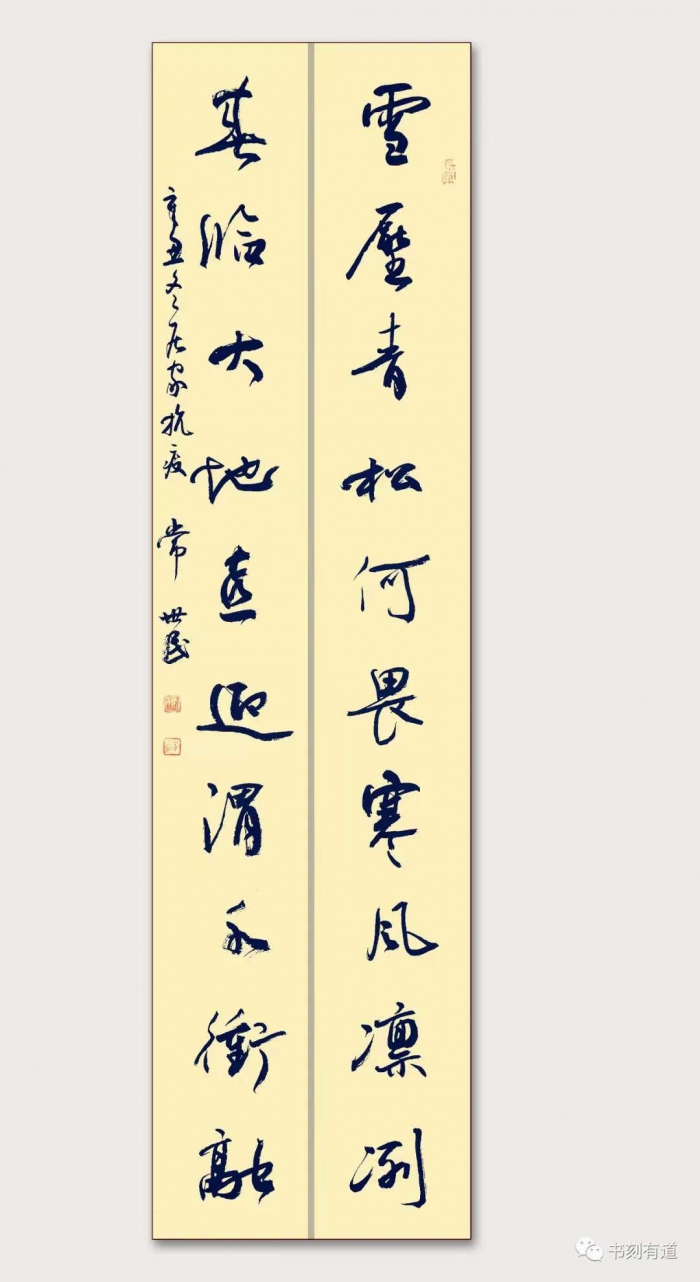 雪壓青松何畏寒風凜冽
春临大地喜迎渭水衝融
辛丑冬居家抗疫 常世民
书刻有道